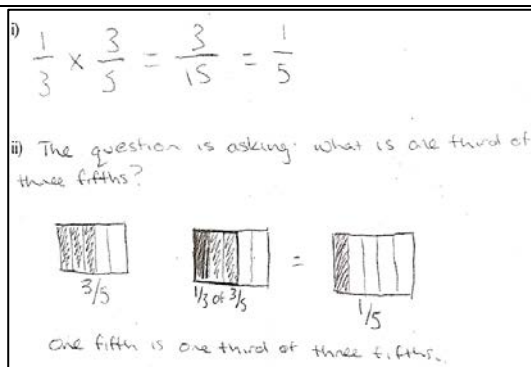 i) 1/3 × 3/5 = 3/15 = 1/5
ii) The question is asking: what is one third of
three fifths?
=
3/5 1/3 of 3/5 1/5
One fifth is one third of three fifths.